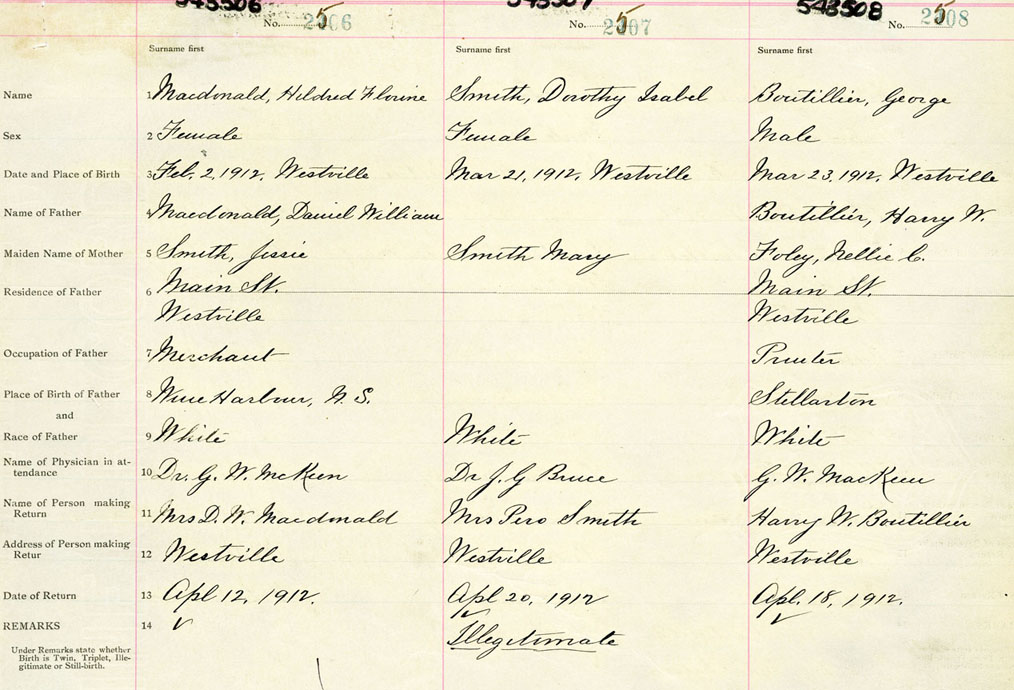 543506 543507 543508
No. 2506 No. 2507 No. 2508
Surname first Surname first Surname first
Name 1 Macdonald, Hildred Florine Smith, Dorothy Isabel Boutillier, George
Sex 2 Female Female Male
Date and Place of Birth 3 Feb. 2, 1912, Westville Mar 21, 1912, Westville Mar 23, 1912, Westville
Name of Father 4 Macdonald, Daniel William Boutillier, Harry W.
Maiden Name of Mother 5 Smith, Jessie Smith Mary Foley, Nellie C.
Residence of Father 6 Main St. Main St.
Westville Westville
Occupation of Father 7 Merchant Printer
Place of Birth of Father 8 Wine Harbour, N.S. Stellarton
and
Race of Father 9 White White White
Name of Physician in at-
tendance 10 Dr. G. W. McKeen Dr J. G Bruce G. W. MacKeen
Name of Person making
Return 11 Mrs D. W. Macdonald Mrs Smith Harry W. Boutillier
Address of Person making
Retur 12 Westville Westville Westville
Date of Return 13 Apl 12, 1912. Apl 20, 1912 Apl. 18, 1912.
REMARKS 14 Illegitimate
Under Remarks state whether
Birth is Twin, Triplet, Ille-
gitimate or Still-birth.